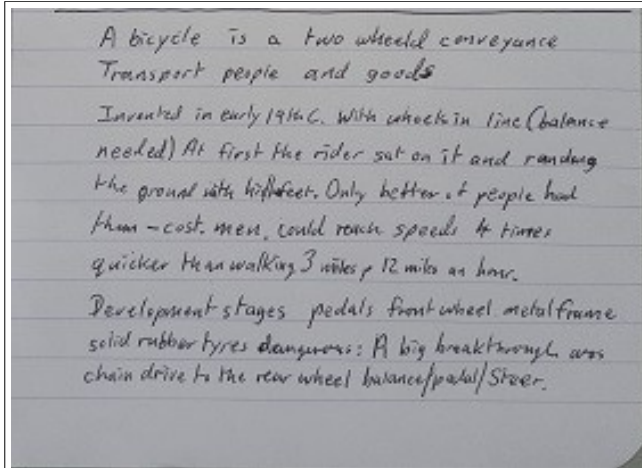 A bicycle is a two wheeld conveyance
Transport people and goods
Invented in early 19th C. With wheels in line (balance
needed) At first the rider sat on it and ran along
the ground with feet. Only better of people had
them - cost. men. could reach speeds 4 times
quicker than walking 3 miles 12 miles an hour.
Development stages pedals front wheel metal frame
solid rubber tyres dangerous: A big breakthrough was
chain drive to the rear wheel balance/pedal/Steer.